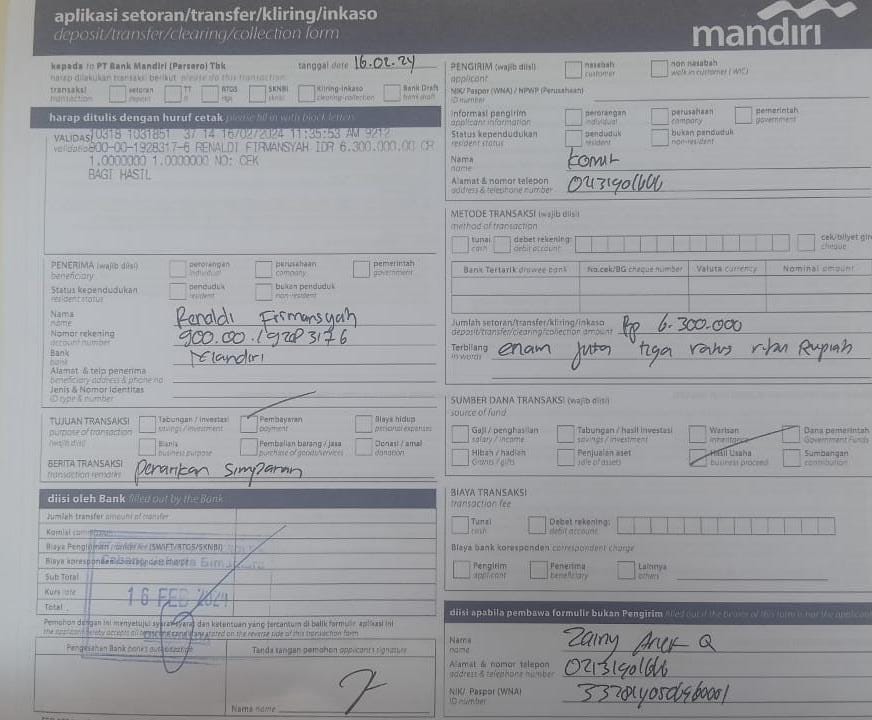 aplikasi setoran/transfer/kliring/inkaso
deposit/transfer/clearing/collection form
mandiri
kepada to PT Bank Mandiri (Persero) Tbk
tanggal date 16.02.24
harap dilakukan transaksi berikut please do this transaction:
transaksi transaction
setoran deposit
TT tt
RTGS rtgs
SKNBI sknbi
Kliring-Inkaso clearing-collection
Bank Draft bank draft
harap ditulis dengan huruf cetak please fill in with block letters
VALIDASI
validation
0318 1031851 37 14 16/02/2024 11:35:53 AM 9212
900-00-1928317-6 RENALDI FIRMANSYAH IDR 6.300.000,00 CR
1.0000000 1.0000000 NO: CEK
BAGI HASIL
PENERIMA (wajib diisi)
beneficiary
perorangan individual
perusahaan company
pemerintah government
Status kependudukan
resident status
penduduk resident
bukan penduduk non-resident
Nama Renaldi Firmansyah
name
Nomor rekening 900.00.1928317 6
account number
Bank Mandiri
bank
Alamat & telp penerima
beneficiary address & phone no
Jenis & Nomor Identitas
ID type & number
TUJUAN TRANSAKSI
purpose of transaction
(wajib diisi)
Tabungan / investasi savings / investment
Pembayaran payment
Biaya hidup personal expenses
Bisnis business purpose
Pembelian barang / jasa purchase of goods/services
Donasi / amal donation
BERITA TRANSAKSI Penarikan Simpanan
transaction remarks
diisi oleh Bank filled out by the Bank
Jumlah transfer amount of transfer
Komisi
Biaya Pengiriman (SWIFT/RTGS/SKNBI)
Biaya koresponden
Sub Total
Kurs rate
Total
16 FEB 2024
Pemohon dengan ini menyetujui syarat-syarat dan ketentuan yang tercantum di balik formulir aplikasi ini
the applicant hereby accepts all terms and conditions stated on the reverse side of this transaction form
Pengesahan Bank bank's authorization
Tanda tangan pemohon applicant's signature
Nama name
PENGIRIM (wajib diisi)
applicant
nasabah customer
non nasabah walk in customer (WIC)
NIK/ Paspor (WNA) / NPWP (Perusahaan)
ID number
Informasi pengirim
applicant information
perorangan individual
perusahaan company
pemerintah government
Status kependudukan
resident status
penduduk resident
bukan penduduk non-resident
Nama
name
Alamat & nomor telepon
address & telephone number
METODE TRANSAKSI (wajib diisi)
method of transaction
tunai cash
debet rekening: debit account
cek/bilyet giro cheque
Bank Tertarik drawee bank
No.cek/BG cheque number
Valuta currency
Nominal amount
Jumlah setoran/transfer/kliring/inkaso Rp 6.300.000
deposit/transfer/clearing/collection amount
Terbilang enam juta tiga ratus ribu Rupiah
in words
SUMBER DANA TRANSAKSI (wajib diisi)
source of fund
Gaji / penghasilan salary / income
Tabungan / hasil investasi savings / investment
Warisan inheritance
Dana pemerintah Government Funds
Hibah / hadiah Grants / gifts
Penjualan aset sale of assets
Hasil Usaha business proceed
Sumbangan contribution
BIAYA TRANSAKSI
transaction fee
Tunai cash
Debet rekening: debit account
Biaya bank koresponden correspondent charge
Pengirim applicant
Penerima beneficiary
Lainnya others
diisi apabila pembawa formulir bukan Pengirim filled out if the bearer of this form is not the applicant
Nama
name
Alamat & nomor telepon
address & telephone number
NIK/ Paspor (WNA)
ID number